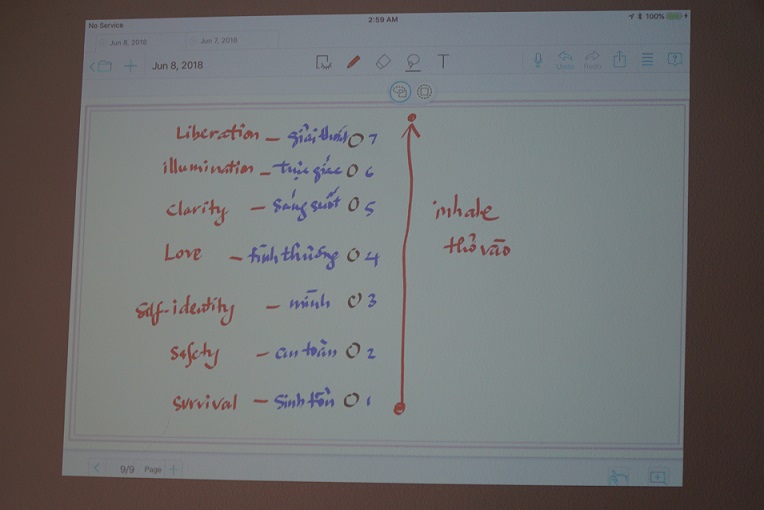 No Service
2:59 AM
100%
Jun 8, 2018
Jun 7, 2018
Jun 8, 2018
T
Undo
Redo
Liberation – giải thoát 7
illumination – trực giác 6
Clarity – sáng suốt 5
Love – tình thương 4
Self-identity – mình 3
Safety – an toàn 2
Survival – Sinh tồn 1
inhale
thở vào
9/9 Page